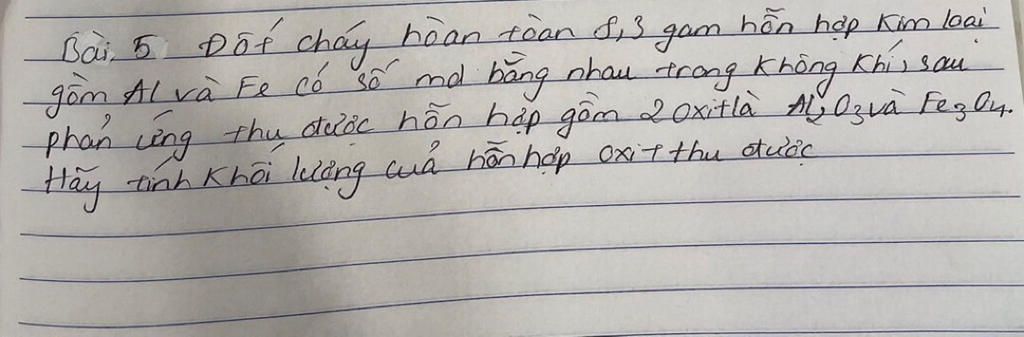 Bài 5 Đốt cháy hoàn toàn 8,3 gam hỗn hợp kim loại
gồm Al và Fe có số mol bằng nhau trong không khí, sau
phản ứng thu được hỗn hợp gồm 2 oxit là Al₂O₃ và Fe₃O₄.
Hãy tính khối lượng cuả hỗn hợp oxit thu được